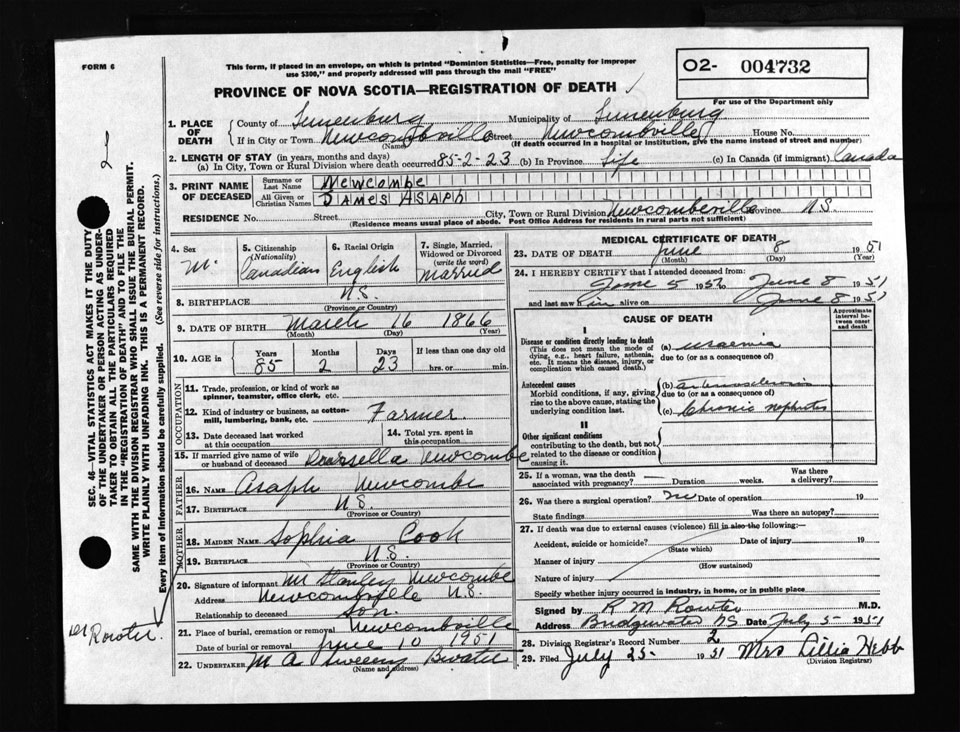 FORM 6
This form, if placed in an envelope, on which is printed "Dominion Statistics—Free, penalty for improper
use $300," and properly addressed will pass through the mail "FREE"
02- 004732
PROVINCE OF NOVA SCOTIA—REGISTRATION OF DEATH
For use of the Department only
1. PLACE OF DEATH
County of Lunenburg Municipality of Lunenburg
If in City or Town Newcombville Street Newcombville House No.
(Name) (If death occurred in a hospital or institution, give the name instead of street and number)
2. LENGTH OF STAY (in years, months and days)
(a) In City, Town or Rural Division where death occurred 85-2-23 (b) In Province Life (c) In Canada (if immigrant) Canada
3. PRINT NAME OF DECEASED
Surname or Last Name Newcombe
All Given or Christian Names James Asaph
RESIDENCE No. Street City, Town or Rural Division Newcombville Province N.S.
(Residence means usual place of abode. Post Office Address for residents in rural parts not sufficient)
4. Sex M.
5. Citizenship (Nationality) Canadian
6. Racial Origin English
7. Single, Married, Widowed or Divorced (write the word) Married
8. BIRTHPLACE N.S.
(Province or Country)
9. DATE OF BIRTH March 16 1866
(Month) (Day) (Year)
10. AGE in Years Months Days If less than one day old
85 2 23 hrs. or min.
OCCUPATION
11. Trade, profession, or kind of work as
spinner, teamster, office clerk, etc.
12. Kind of industry or business, as cotton-
mill, lumbering, bank, etc. Farmer.
13. Date deceased last worked
at this occupation
14. Total yrs. spent in
this occupation
15. If married give name of wife
or husband of deceased Newcombe
FATHER
16. NAME Asaph Newcombe
17. BIRTHPLACE N.S.
(Province or Country)
MOTHER
18. MAIDEN NAME Sophia Cook
19. BIRTHPLACE N.S.
(Province or Country)
20. Signature of informant M Stanley Newcombe
Address Newcombville N.S.
Relationship to deceased Son.
21. Place of burial, cremation or removal Newcombville
Date of burial or removal June 10 1951
22. UNDERTAKER M A Sweeny B.water
(Name and address)
MEDICAL CERTIFICATE OF DEATH
23. DATE OF DEATH June 8 1951
(Month) (Day) (Year)
24. I HEREBY CERTIFY that I attended deceased from:
June 5 1951 to June 8 1951
and last saw him alive on June 8 1951
CAUSE OF DEATH
Approximate
interval be-
tween onset
and death
I
Disease or condition directly leading to death
(This does not mean the mode of
dying, e.g., heart failure, asthenia,
etc. It means the disease, injury, or
complication which caused death.
(a) uraemia
due to (or as a consequence of)
Antecedent causes
Morbid conditions, if any, giving
rise to the above cause, stating the
underlying condition last.
(b) arteriosclerosis
due to (or as a consequence of)
(c) Chronic nephritis
II
Other significant conditions
contributing to the death, but not
related to the disease or condition
causing it.
25. If a woman, was the death
associated with pregnancy? — Duration weeks. Was there
a delivery?
26. Was there a surgical operation? no Date of operation 19
State findings Was there an autopsy?
27. If death was due to external causes (violence) fill in also the following:—
Accident, suicide or homicide? Date of injury 19
(State which)
Manner of injury
(How sustained)
Nature of injury
Specify whether injury occurred in industry, in home, or in public place
Signed by R M Rowter M.D.
Address Bridgewater NS Date July 5- 1951
28. Division Registrar's Record Number 2
29. Filed July 25- 1951 Mrs Lillia Hebb
(Division Registrar)
2
SEC. 46—VITAL STATISTICS ACT MAKES IT THE DUTY
OF THE UNDERTAKER OR PERSON ACTING AS UNDER-
TAKER TO OBTAIN ALL THE PARTICULARS REQUIRED
IN THE "REGISTRATION OF DEATH" AND TO FILE THE
SAME WITH THE DIVISION REGISTRAR WHO SHALL ISSUE THE BURIAL PERMIT.
WRITE PLAINLY WITH UNFADING INK. THIS IS A PERMANENT RECORD.
Every item of information should be carefully supplied. (See reverse side for instructions.)
Dr Rowter.